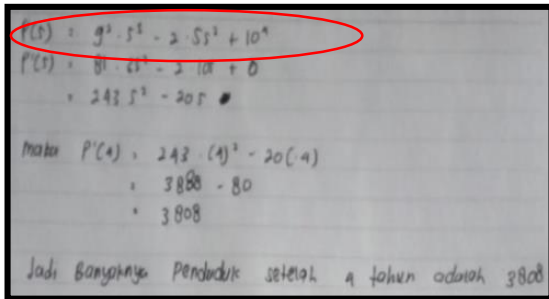 P(5) = 9² · 5³ - 2 · 5s² + 10⁴
P'(5) =
= 243 5² - 205
maka P'(4) = 243 · (4)² - 20(·4)
= 3888 - 80
= 3808
Jadi Banyaknya Penduduk setelah 4 tahun adalah 3808